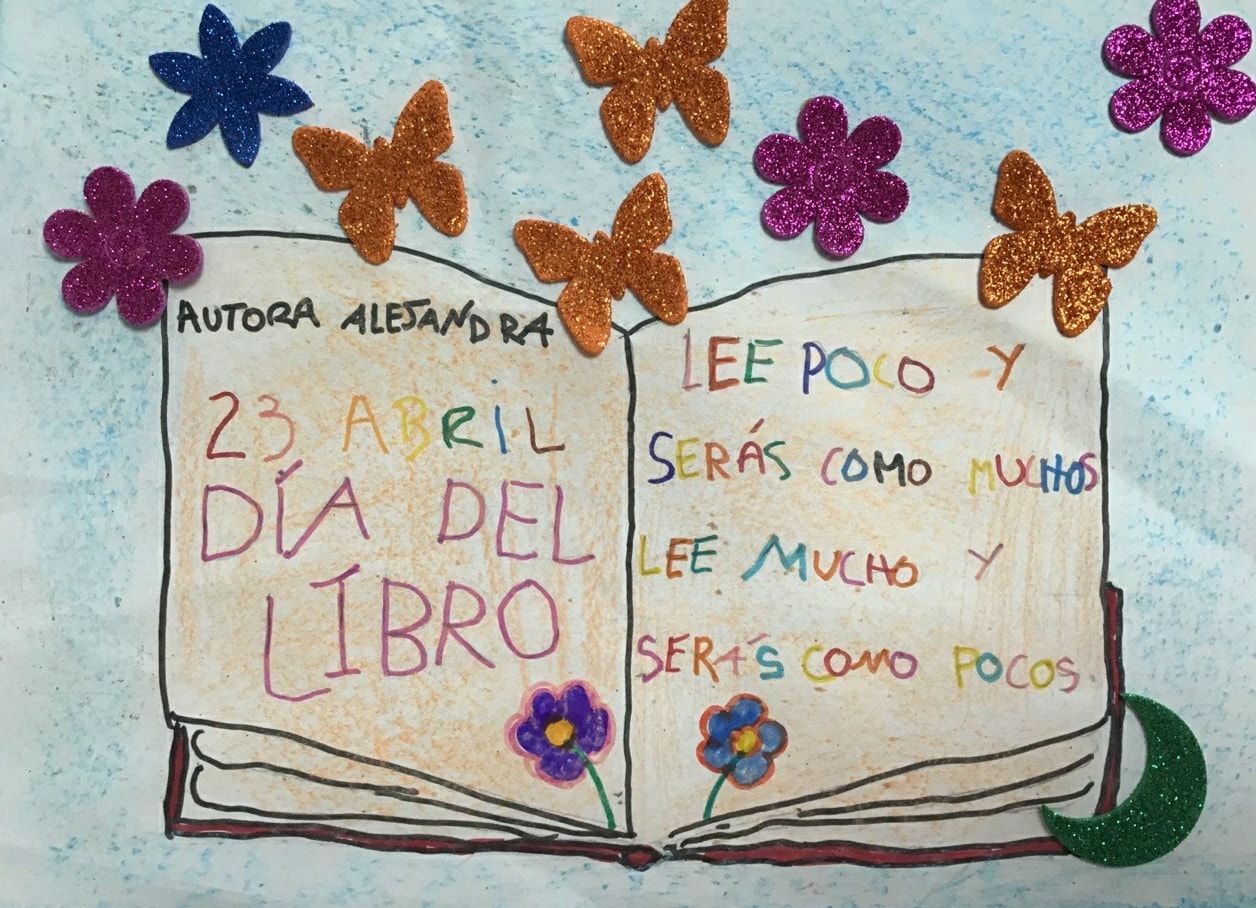 AUTORA ALEJANDRA
23 ABRIL
DÍA DEL
LIBRO
LEE POCO Y
SERÁS COMO MUCHOS
LEE MUCHO Y
SERÁS COMO POCOS.